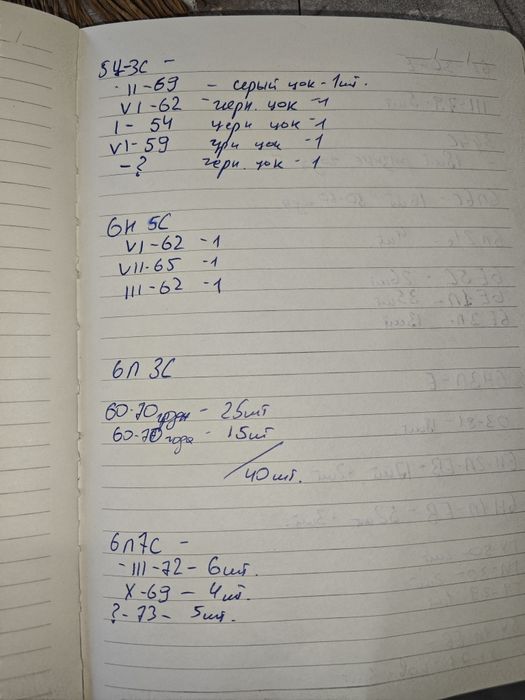 5Ц-3С -
II-69 - серый цок - 1 шт.
VI-62 - черн. цок - 1
I - 54 черн цок - 1
VI-59 чрн цок - 1
- ? черн. цок - 1
6Н 5С
VI-62 - 1
VII-65 - 1
III-62 - 1
6П 3С
60-70 - 25 шт
60-70 года - 15 шт
40 шт.
6П7С -
- III-72 - 6 шт.
X-69 - 4 шт.
? - 73 - 5 шт.